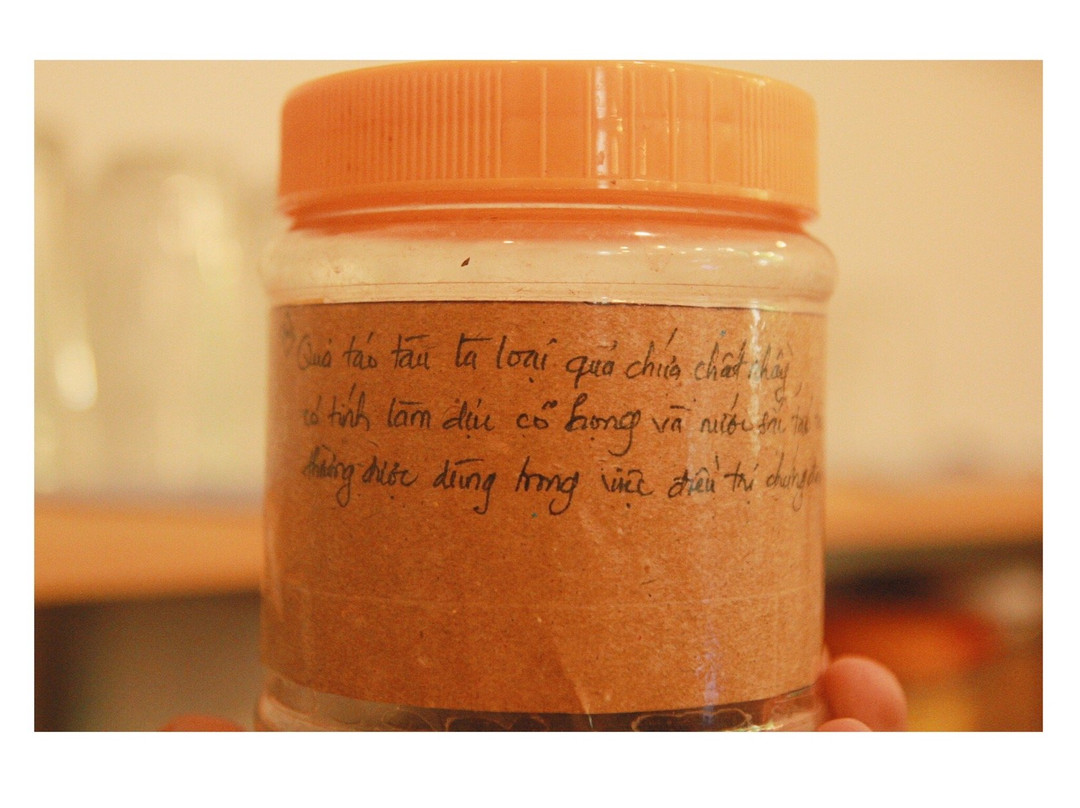 Quả táo tàu là loại quả chứa chất nhầy
có tính làm dịu cổ họng và nước sắc táo
thường được dùng trong việc điều trị chứng